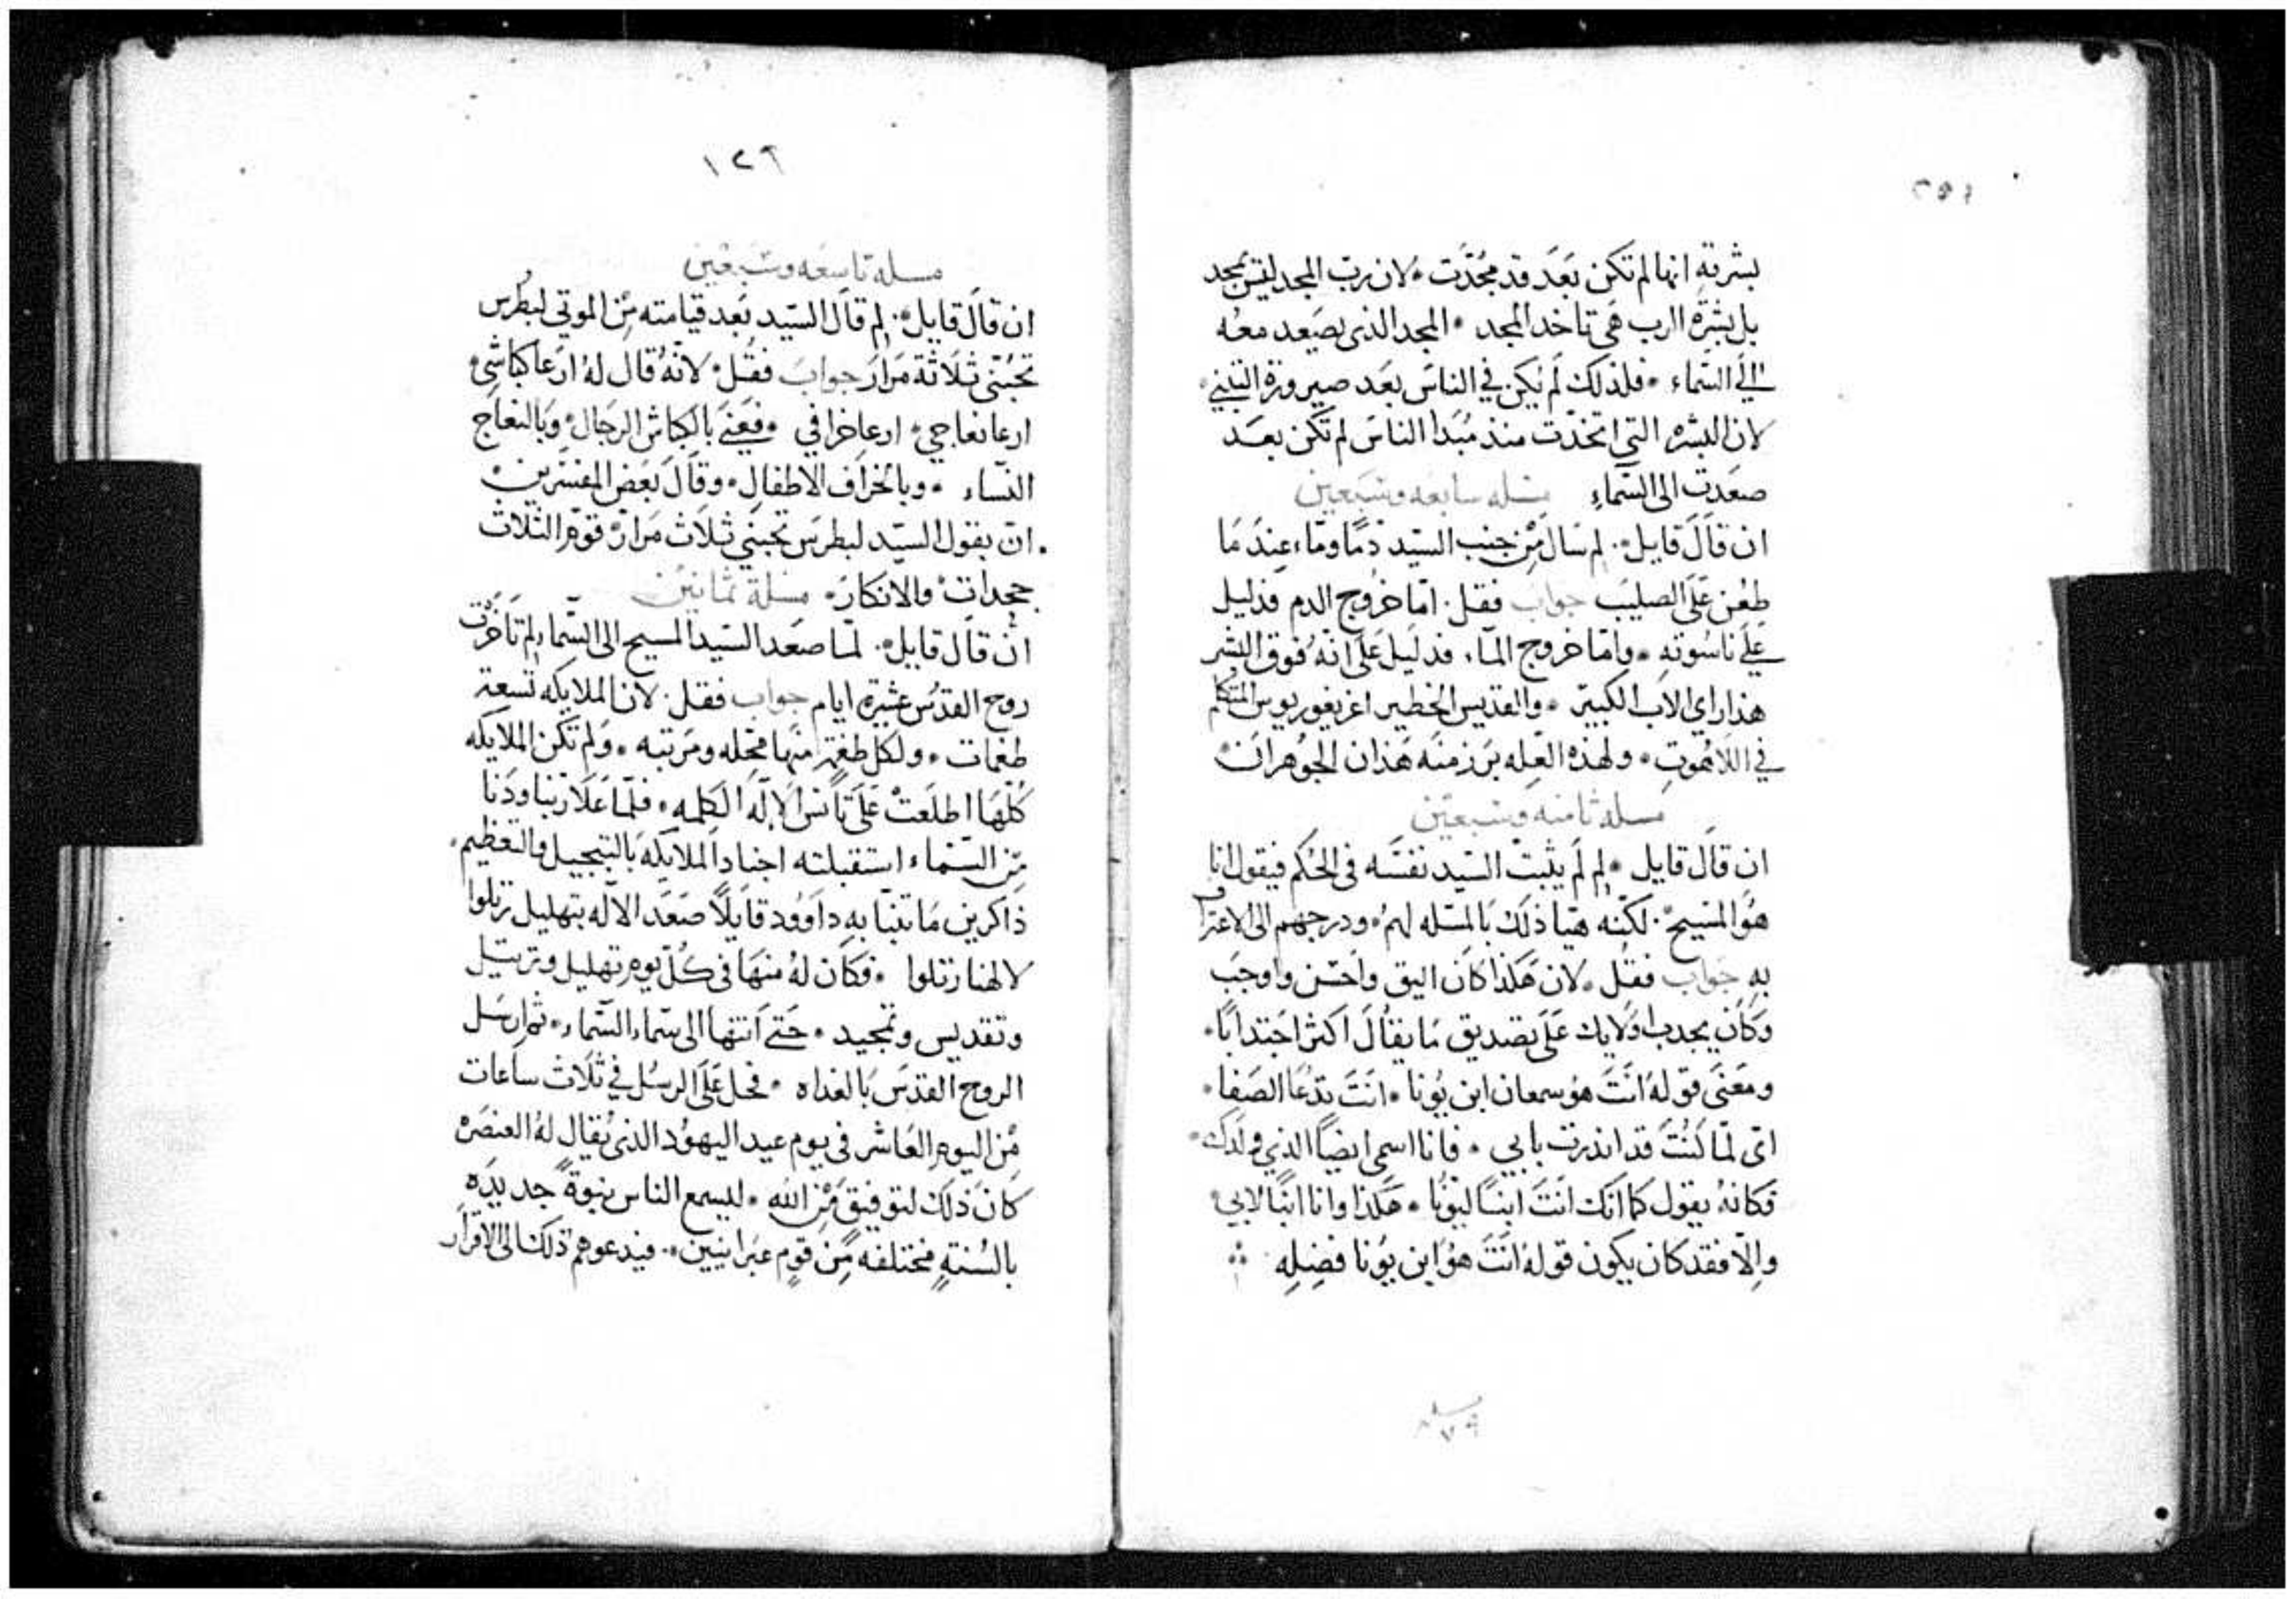 بشريته انها لم تكن بَعَد قد مجُدَّت • لان ربّ المجد ليسَ يمجد
بل بشرة الرب هَي تاخد المجد • المجد الذى يصَعد معهُ
الَي السَّماء • فلذلك لم يكن في الناسَ بَعَد صيرورة التبني •
لان البشره التي اتخدّت منذ مُبَدا الناسَ لم تكَن بعَد
صعَدتَ الى السَّماءِ مسَله سابعه وسَبَعين
ان قالَ قايل • لِم سَال مِن جنب السيّد دمًا وماء عِندَ مَا
طعُن عَلَى الصليبَ جوابَ فقل • امّا خرُوج الدم فدليل
عَلَي ناسُوته • وامّا خروج الماء فدليل عَلَى انهُ فوق البشر
هذا راي الاب الكبير • والقديس الخطير اغريغوريوس المتكلم
في اللاهُوتِ • ولهذه العله بَرزَ منه هَذان الجوهرانَ
مسله ثامنه وسَبعيَن
ان قالَ قايل • لِم لَم يثبتّ السَيّد نفسَه فى الحُكم فيقول انا
هَوُ المسَيح • لكنّه هيّا ذلَك بَالمسَله لهمُ • ودرجهم الى الاعتراف
بهِ جوَاب فقل • لان هَكذا كانَ اليق واحَسَن واوجبَ
وكان يجدب اولايك عَلَى تصديق مَا يقالَ اكثر اجَتدابًا •
ومعَنَى قوله انَتَ هوُ سمعان ابن يُونا • انَتَ تدُعَا الصَفا •
اى لمّا كنُتَ قد اندرت بابي • فانا اسمى ايضًا الذي ولدَك •
فكانهُ يقول كما انك انَتَ ابنًا ليونُا • هَكذا وانا ابنًا لابي •
والّا فقد كان يكون قوله انَتَ هوُ ابن يوُنا فضِلِه
مسله
٧٩
١٢٦
مسله تاسَعه وسَبعَين
ان قالَ قايل • لِم قالَ السيّد بَعد قيامته مِن الموتي لبُطرس
تحبُنّي ثلاثة مَرارَ جوابَ فقلُ • لانّهُ قال لهُ ارَعا كباشي •
ارعا نعاجي • ارعا خرافي • فعَنَي بالكباش الرجَال • وَبالنعَاج
النسّاء • وبالخرافَ الاطفال • وقالَ بَعَض المفسّرين
انّ بقول السَيّد لبطرسَ تحبّني ثلاثَ مَرارَ قوّم الثلاثَ
جحَداتَ والانكارَ • مسَلة ثمانيَن
ان قالَ قايل • لمّا صعَد السَيّد المسيح الى السّماء لم تاَخرّت
روح القدُس عشرة ايام جوَاب فقل • لان الملايكه تسعة
طغمات • ولكل طغمة منها محَله ومرَتبه • وَلم تكَن الملايكه
كلّها اطلعَتَ عَلَى تأنسَ الاِله الكلمه • فلمّا عَلَا ربّنا ودَنا
مِن السَماء استقبلته اجناد الملايكَه بَالتبجيل والتعَظيم •
ذاكرين مَا تنبّا بهِ داوَوُد قايلًا صَعَد الاله بتهليل رتلوا
لالهنا رتلوا • فكَان لهُ منهَا فى كُلّ يوم تهليل وترتيل
وتقديس وتمجيد • حَتى اَنتهَا الى سَماء السّماء • ثم ارسَل
الروح القدسَ بَالغداه • فحل عَلَى الرسُل في ثَلاث ساعَات
مِن اليوم العَاشر فى يوم عيد اليهوُد الذى يُقال لهُ العنصَرَه
كانَ ذلَك لتوفيق مَن الله • ليسمع الناس بنبوةً جديدَه
بالسُنةٍ مختلفه مِّن قومٍ عبَرانيين • فيدعوهم ذلَك الى الاقرار